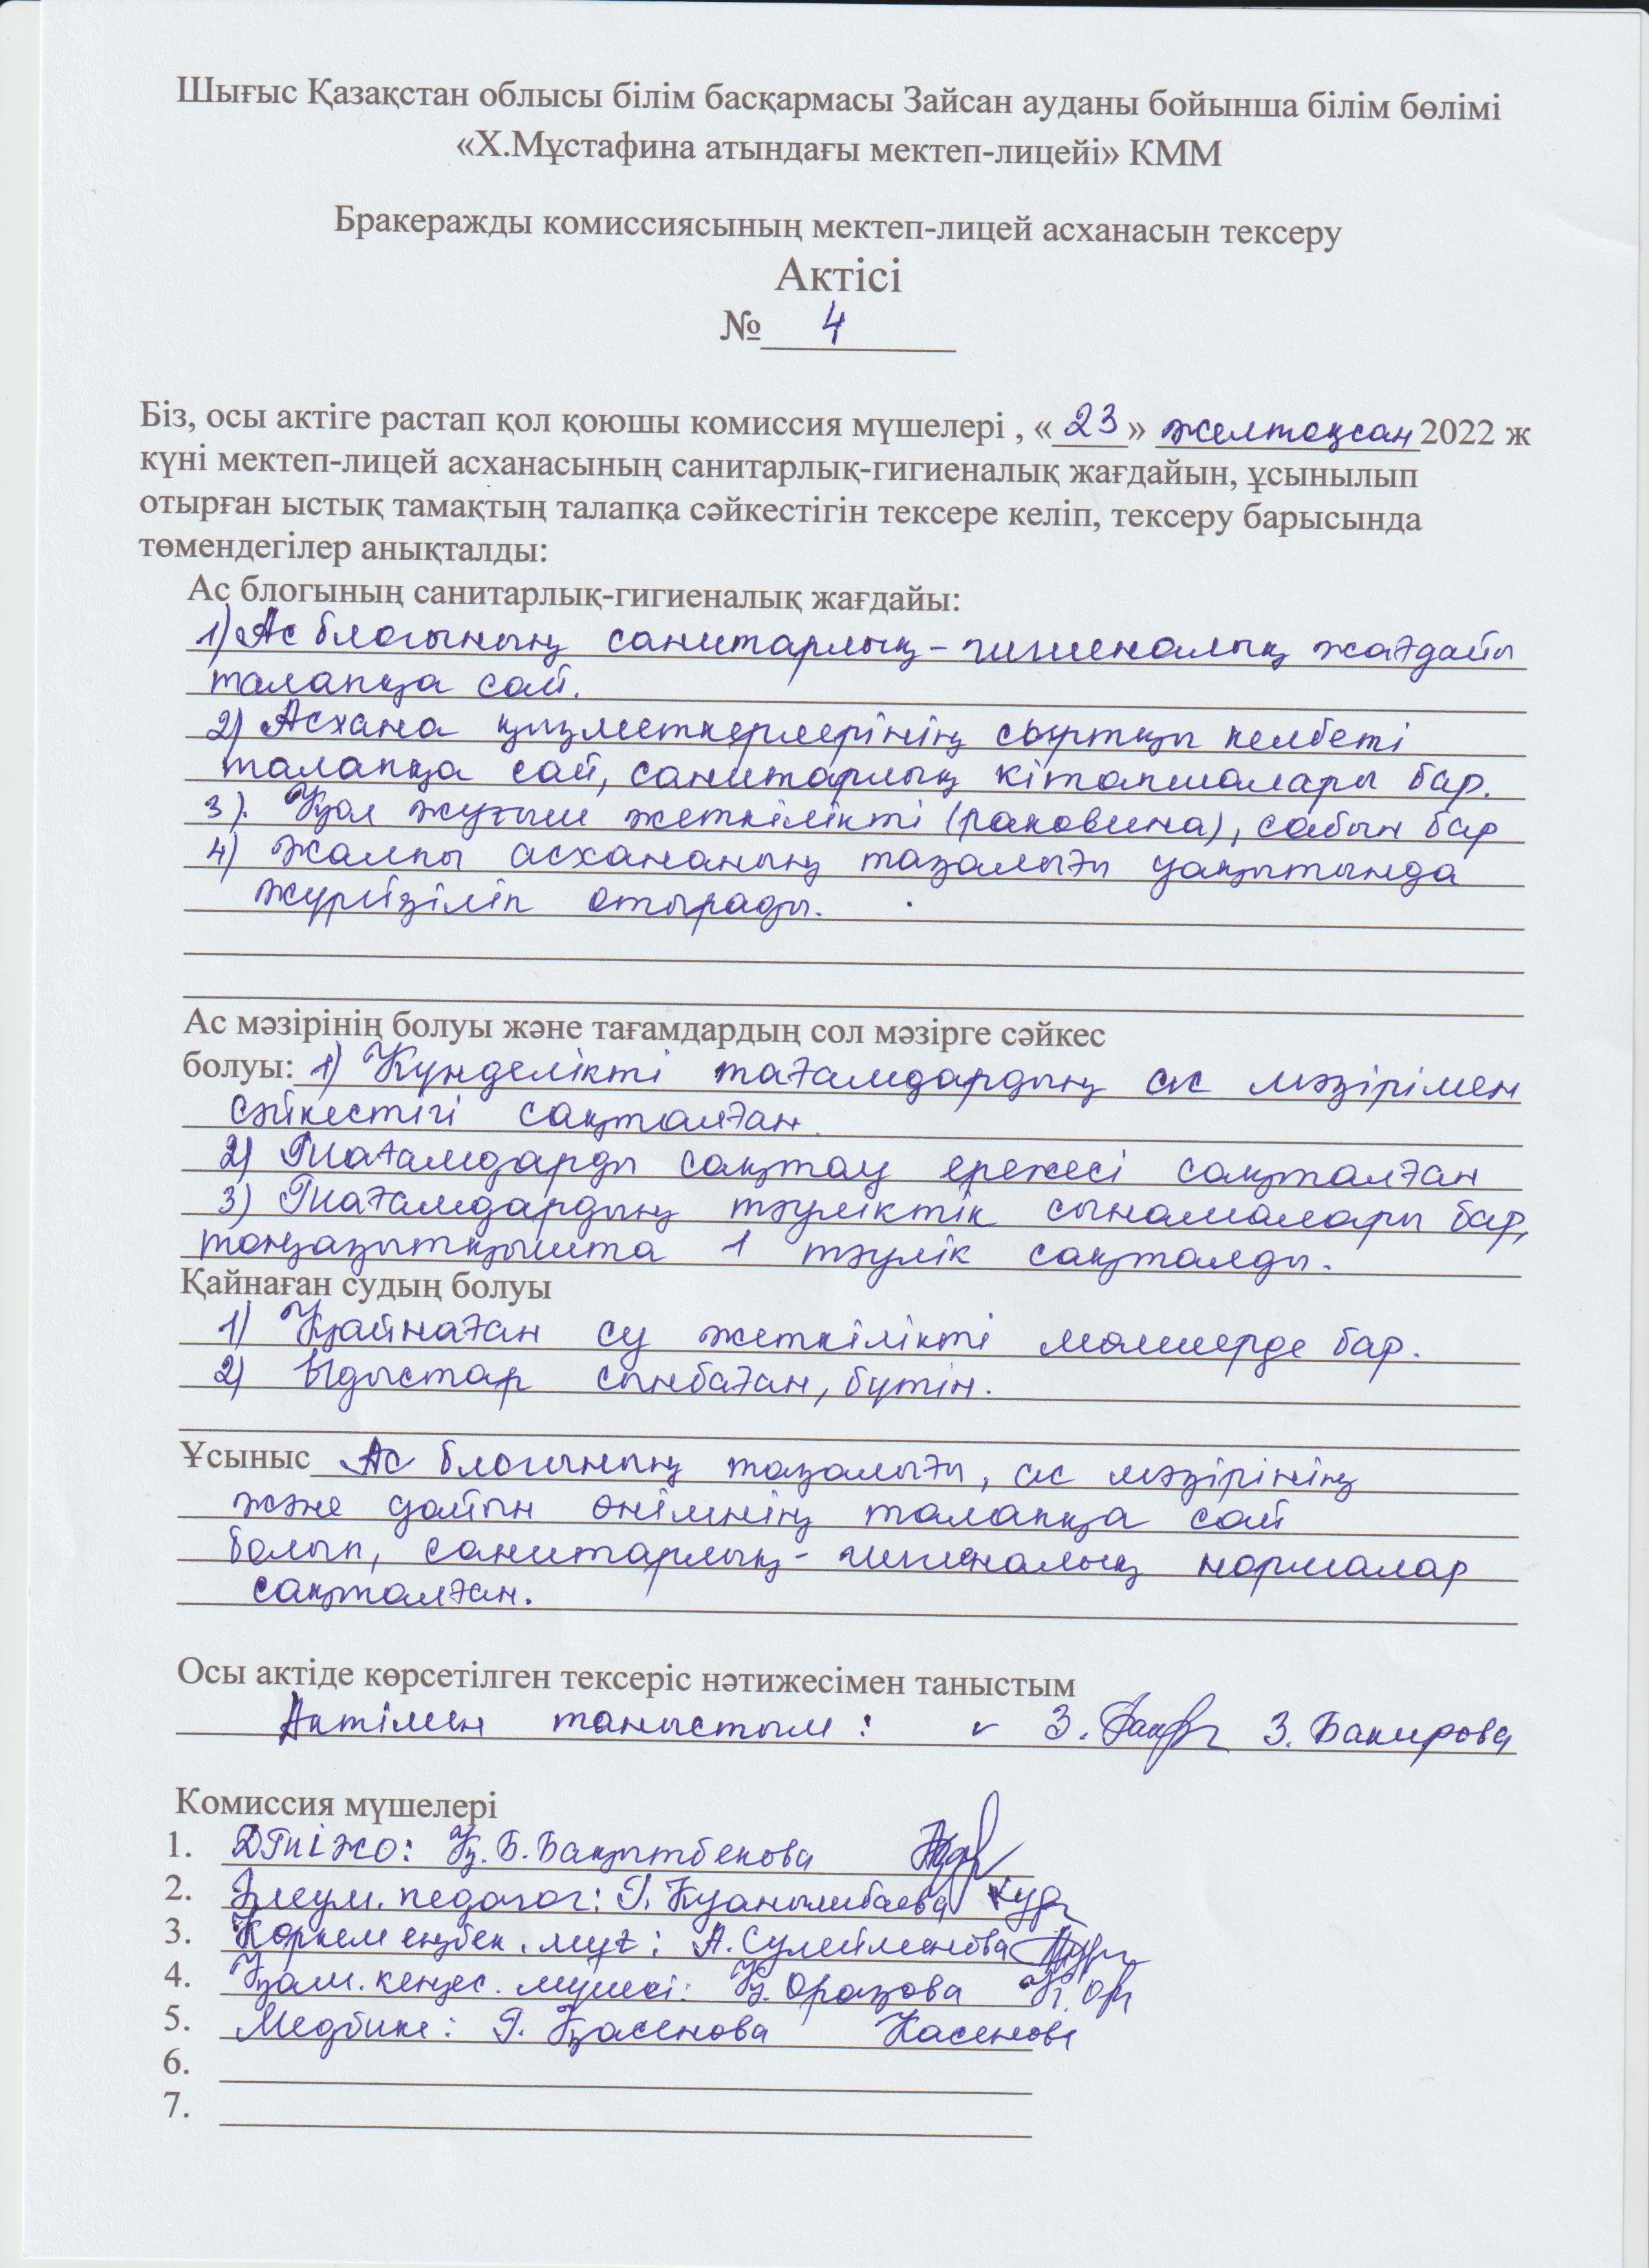 Шығыс Қазақстан облысы білім басқармасы Зайсан ауданы бойынша білім бөлімі
«Х.Мұстафина атындағы мектеп-лицейі» КММ
Бракеражды комиссиясының мектеп-лицей асханасын тексеру
Актісі
№ 4
Біз, осы актіге растап қол қоюшы комиссия мүшелері , «23» желтоқсан 2022 ж
күні мектеп-лицей асханасының санитарлық-гигиеналық жағдайын, ұсынылып
отырған ыстық тамақтың талапқа сәйкестігін тексере келіп, тексеру барысында
төмендегілер анықталды:
Ас блогының санитарлық-гигиеналық жағдайы:
1) Ас блогының санитарлық-гигиеналық жағдайы
талапқа сай.
2) Асхана қызметкерлерінің сыртқы келбеті
талапқа сай, санитарлық кітапшалары бар.
3). Қол жуғыш жеткілікті (раковина), сабын бар
4) Жалпы асхананың тазалығы уақытында
жүргізіліп отырады.
Ас мәзірінің болуы және тағамдардың сол мәзірге сәйкес
болуы: 1) Күнделікті тағамдардың ас мәзірімен
сәйкестігі сақталған.
2) Тағамдарды сақтау ережесі сақталған
3) Тағамдардың тәуліктік сынамалары бар,
тоңазытқышта 1 тәулік сақталды.
Қайнаған судың болуы
1) Қайнаған су жеткілікті мөлшерде бар.
2) Ыдыстар сынбаған, бүтін.
Ұсыныс Ас блогының тазалығы, ас мәзірінің
және дайын өнімнің талапқа сай
болып, санитарлық-гигеналық нормалар
сақталған.
Осы актіде көрсетілген тексеріс нәтижесімен таныстым
Актімен таныстым: З. Бакирова
Комиссия мүшелері
1. ДТпІЖО: Қ.Б.Бақытбекова
2. Әлеум. педагог: Г. Қуанышбаева
3. Көркем еңбек. мұғ: А. Сулейменова
4. Қам. кеңес. мүшесі: Қ. Оразова
5. Медбике: Г. Қасенова Касенова
6.
7.